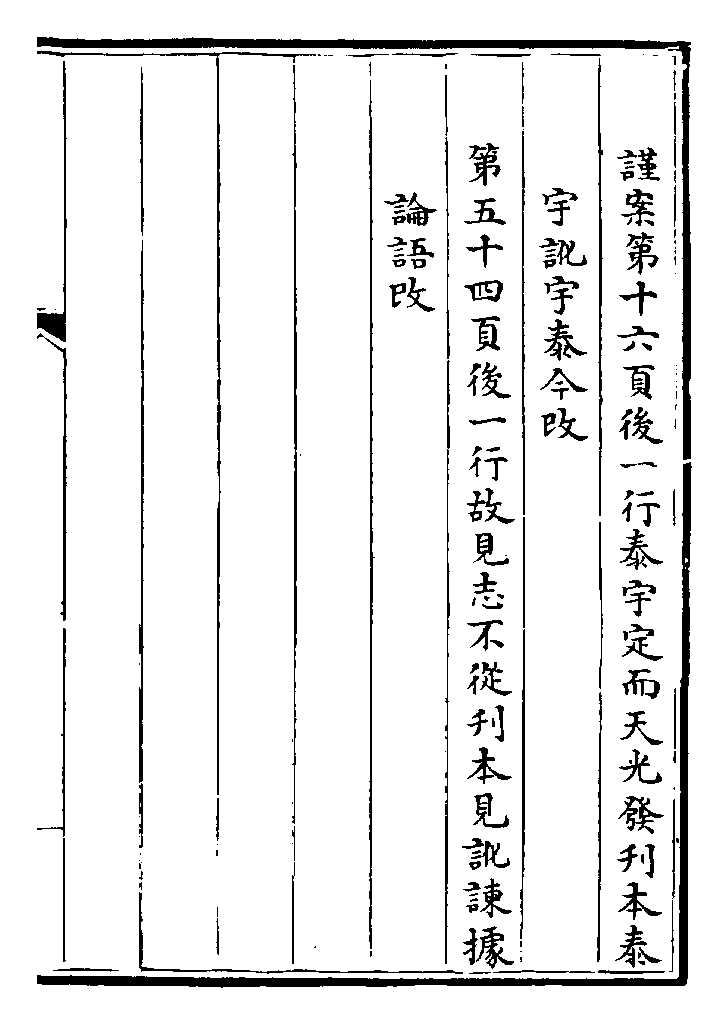 謹案第十六頁後一行泰宇定而天光發刋本泰
宇訛宇泰今改
第五十四頁後一行故見志不從刋本見訛諫據
論語改